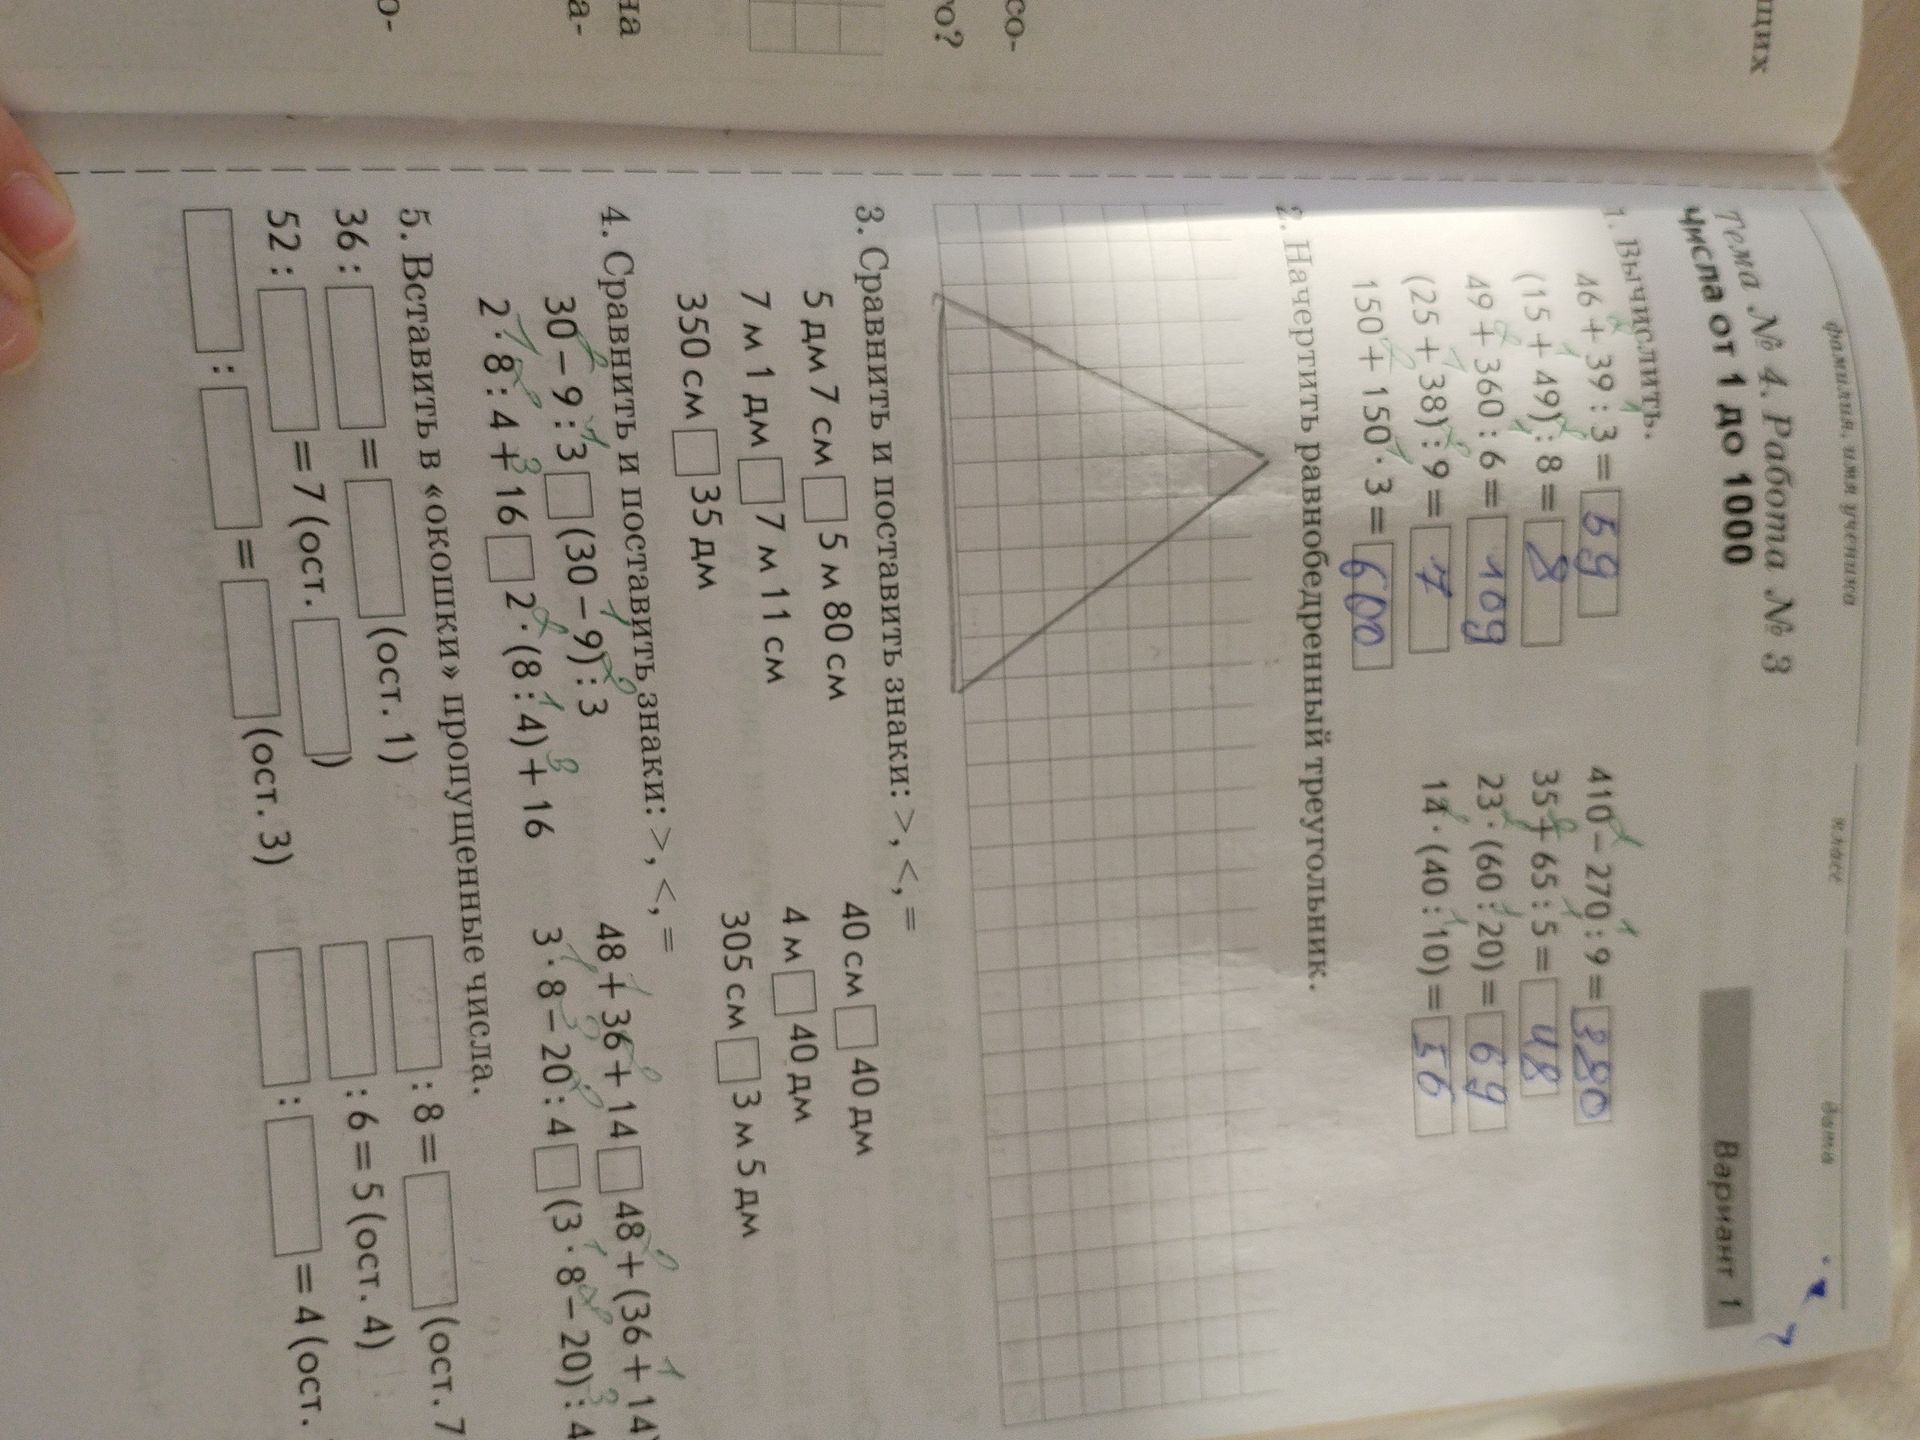 щих
со-
го?
на
а-
о-
фамилия, имя ученика класс дата
Тема № 4. Работа № 3
числа от 1 до 1000
Вариант 1
1. Вычислить.
46 + 39 : 3 = 59
410 − 270 : 9 = 380
(15 + 49) : 8 = 8
35 + 65 : 5 = 48
49 + 360 : 6 = 109
23 · (60 : 20) = 69
(25 + 38) : 9 = 7
14 · (40 : 10) = 56
150 + 150 · 3 = 600
2. Начертить равнобедренный треугольник.
3. Сравнить и поставить знаки: >, <, =
5 дм 7 см □ 5 м 80 см
40 см □ 40 дм
7 м 1 дм □ 7 м 11 см
4 м □ 40 дм
350 см □ 35 дм
305 см □ 3 м 5 дм
4. Сравнить и поставить знаки: >, <, =
30 − 9 : 3 □ (30 − 9) : 3
48 + 36 + 14 □ 48 + (36 + 14)
2 · 8 : 4 + 16 □ 2 · (8 : 4) + 16
3 · 8 − 20 : 4 □ (3 · 8 − 20) : 4
5. Вставить в «окошки» пропущенные числа.
36 : □ = □ (ост. 1)
□ : 8 = □ (ост. 7
52 : □ = 7 (ост. □)
□ : 6 = 5 (ост. 4)
□ : □ = □ (ост. 3)
□ : □ = 4 (ост.